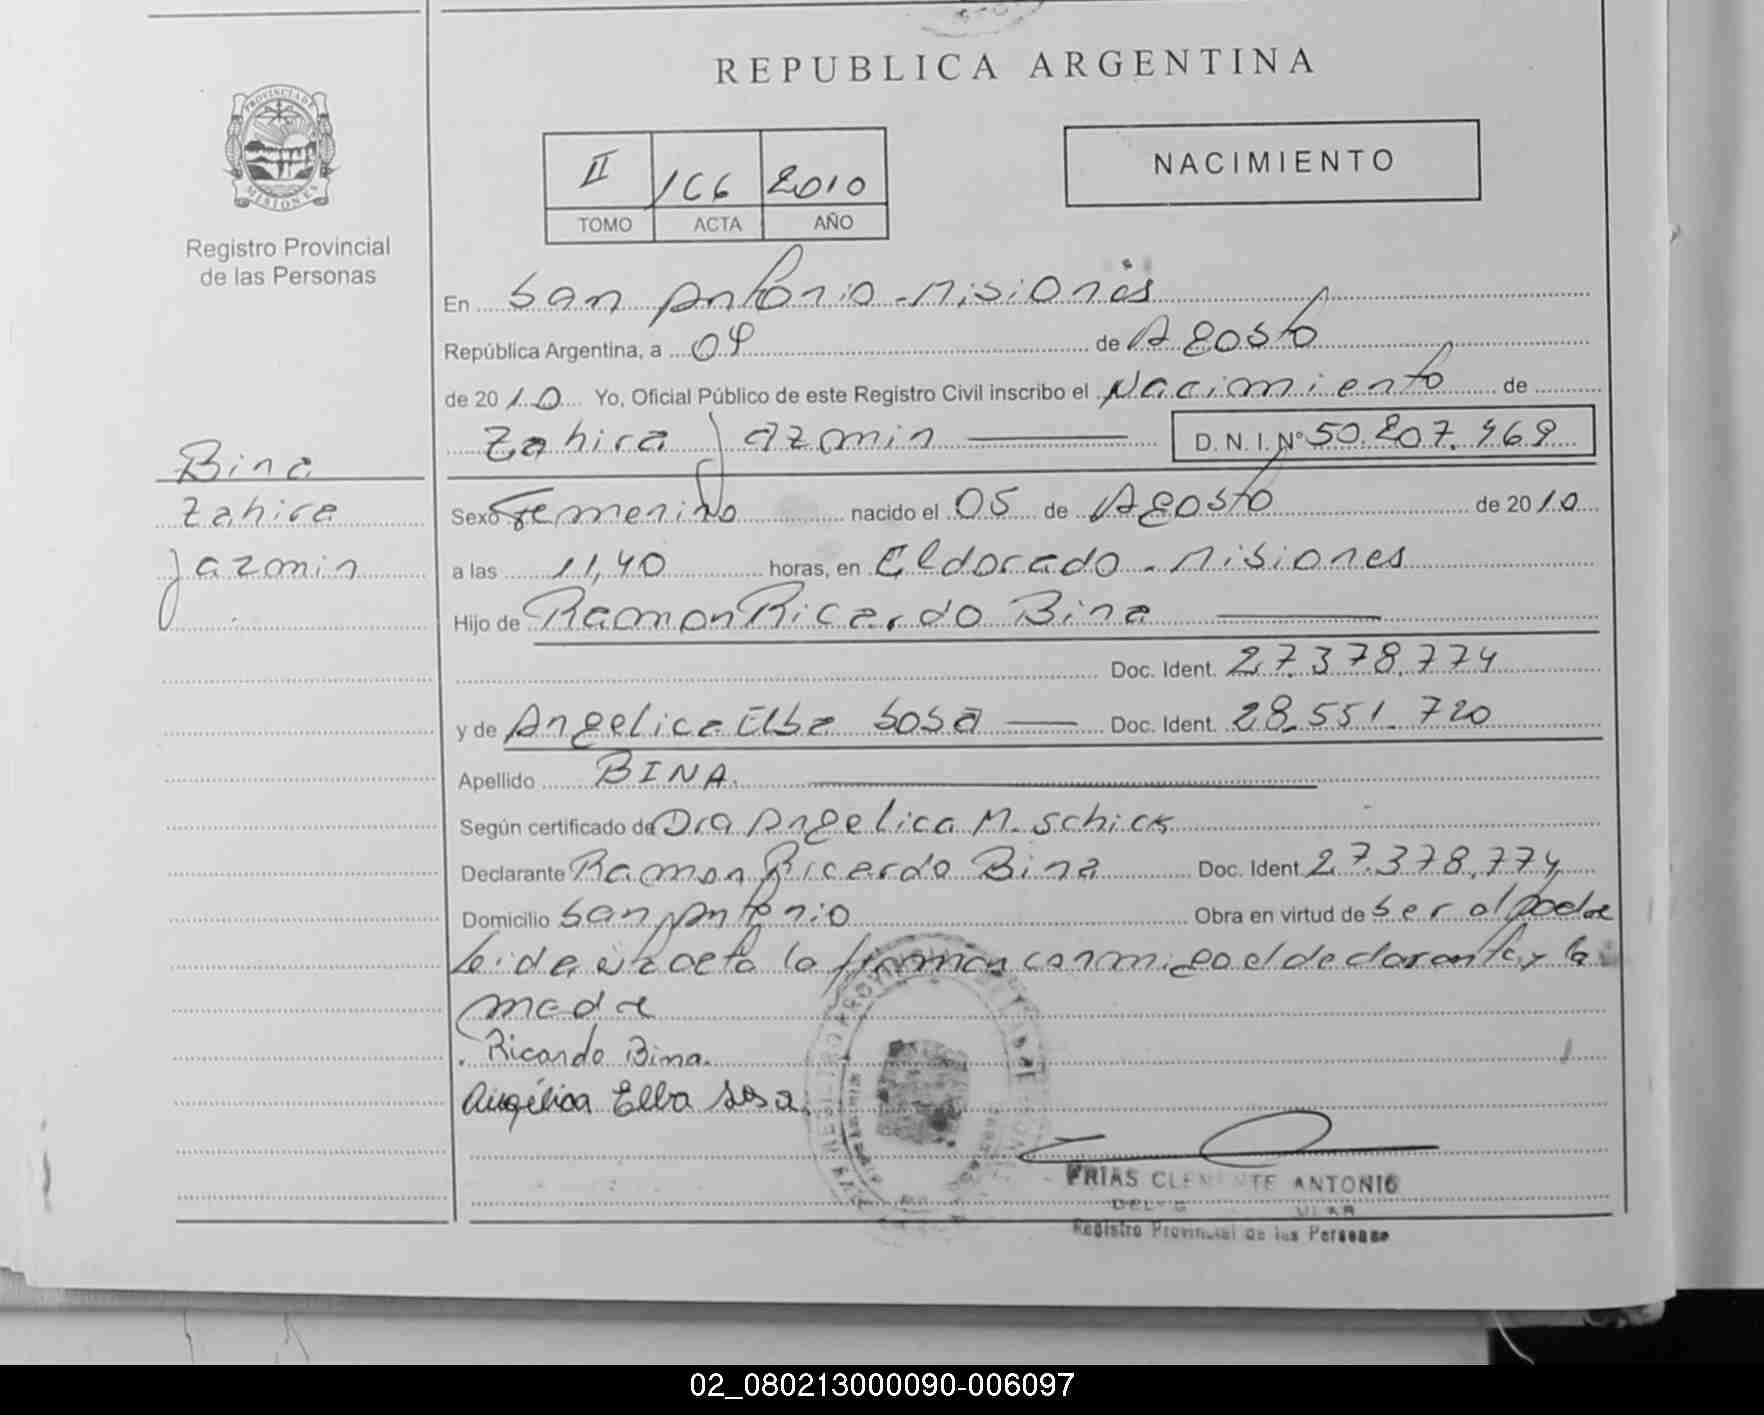 REPUBLICA ARGENTINA
PROVINCIA DE
MISIONES
Registro Provincial
de las Personas
II 166 2010
TOMO ACTA AÑO
NACIMIENTO
En San Antonio - Misiones
República Argentina, a 09 de Agosto
de 2010 Yo, Oficial Público de este Registro Civil inscribo el Nacimiento de
Zahira Jazmin D. N. I. N° 50.207.469
Bina
Zahira
Jazmin
Sexo Femenino nacido el 05 de Agosto de 2010
a las 11,40 horas, en Eldorado - Misiones
Hijo de Ramon Ricardo Bina
Doc. Ident. 27.378.774
y de Angelica Elba Sosa Doc. Ident. 28.551.720
Apellido BINA.
Según certificado de Dra Angelica M. Schick
Declarante Ramon Ricardo Bina Doc. Ident. 27.378.774
Domicilio San Antonio Obra en virtud de Ser el padre
Leida el acta la firman conmigo el declarante y la
madre
Ricardo Bina.
Angélica Elba Sosa.
FRIAS CLEMENTE ANTONIO
Registro Provincial de las Personas
02_080213000090-006097